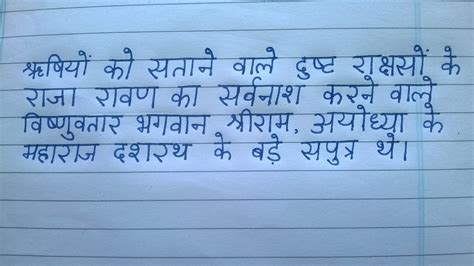 ऋषियों को सताने वाले दुष्ट राक्षसों के
राजा रावण का सर्वनाश करने वाले
विष्णुवतार भगवान श्रीराम, अयोध्या के
महाराज दशरथ के बड़े सपुत्र थे।